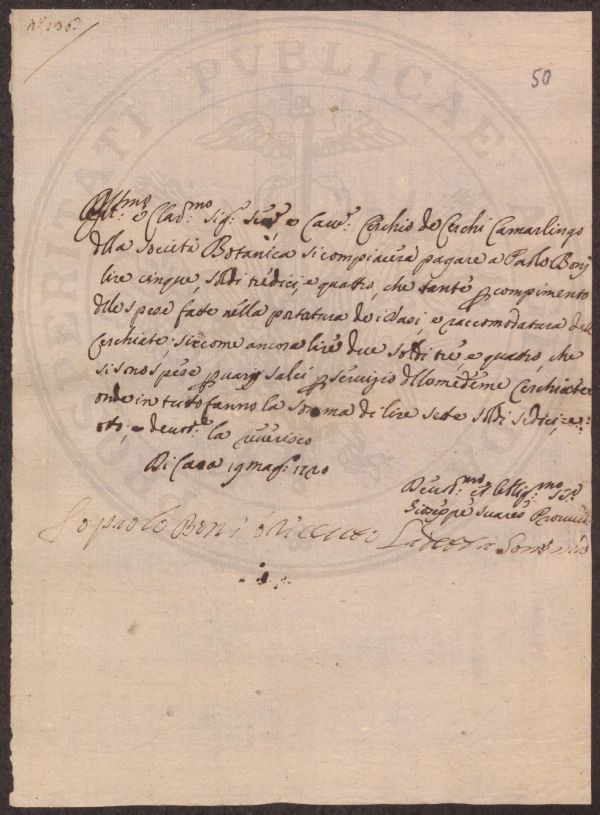 N.º 136.
50
Ill.mo e Clar.mo Sig.r Sen.r e Cav.r Cerchio de Cerchi Camarlingo
della Società Botanica si compiacerà pagare a Paolo Boni
lire cinque, soldi tredici, e quattro, che tante p compimento
delle spese fatte nella portatura de i Vasi, e raccomodatura delle
Cerchiate, siccome ancora lire due soldi tre, e quattro, che
si sono spese p varij salci p servizio delle medeme Cerchiate
onde in tutto fanno la somma di lire sette soldi sedici, e
otto, e devot.e la riverisco
Di Casa 19 Mag.o 1720
Devot.mo et Obblig.mo S.re
Giuseppe Suares Provved.
Io paolo Boni ò riceuto La deta Soma
PROSPERITATI PUBLICAE